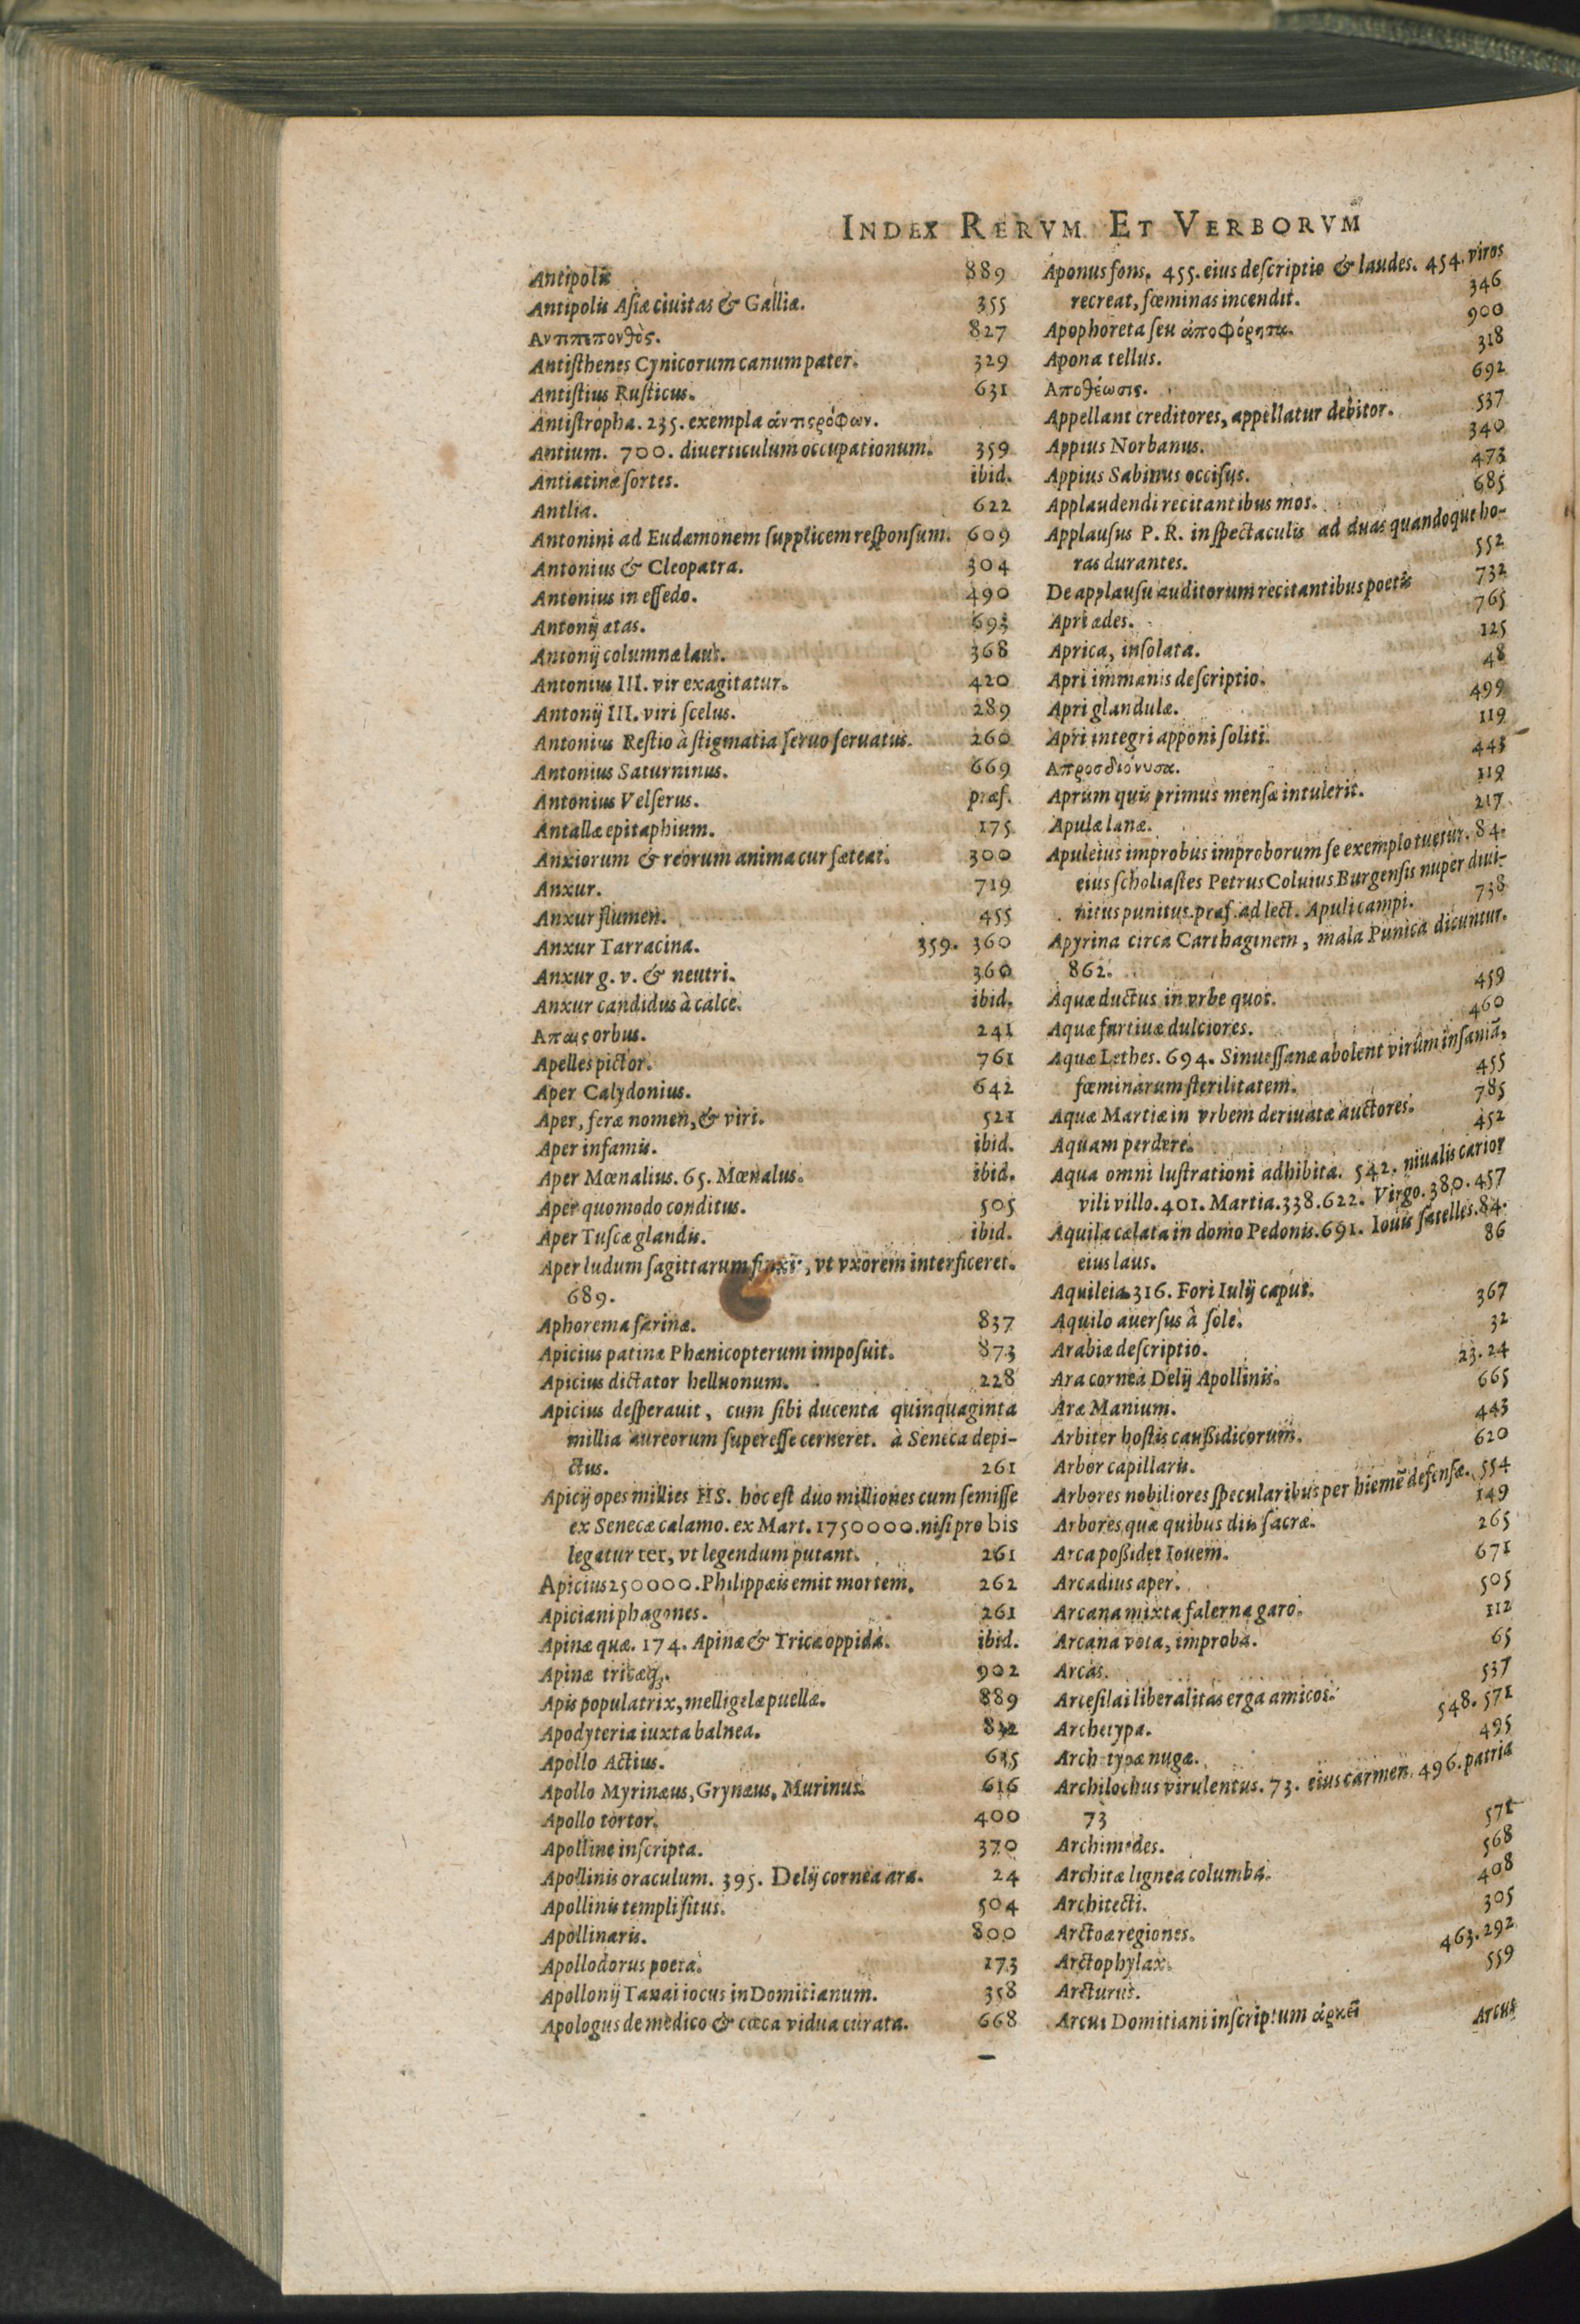 INDEX RERVM ET VERBORVM
Antipolis 889
Antipolis Asiæ ciuitas & Galliæ. 355
Αντιπεπονθὸς. 827
Antisthenes Cynicorum canum pater. 329
Antistius Rusticus. 631
Antistropha. 235. exempla ἀντιςρόφων.
Antium. 700. diuerticulum occupationum. 359
Antiatinæ sortes. ibid.
Antlia. 622
Antonini ad Eudæmonem supplicem responsum. 609
Antonius & Cleopatra. 304
Antonius in essedo. 490
Antonij ætas. 693
Antonij columnæ laus. 368
Antonius III. vir exagitatur. 420
Antonij III. viri scelus. 289
Antonius Restio à stigmatia seruo seruatus. 260
Antonius Saturninus. 669
Antonius Velserus. præf.
Antallæ epitaphium. 175
Anxiorum & reorum anima cur fæteat. 300
Anxur. 719
Anxur flumen. 455
Anxur Tarracina. 359. 360
Anxur g. v. & neutri. 360
Anxur candidus à calce. ibid.
Απαις orbus. 241
Apelles pictor. 761
Aper Calydonius. 642
Aper, feræ nomen, & viri. 521
Aper infamis. ibid.
Aper Mœnalius. 65. Mœnalus. ibid.
Aper quomodo conditus. 505
Aper Tuscæ glandis. ibid.
Aper ludum sagittarum finxit, vt vxorem interficeret.
689.
Aphorema farinæ. 837
Apicius patinæ Phænicopterum imposuit. 873
Apicius dictator helluonum. 228
Apicius desperauit, cum sibi ducenta quinquaginta
millia aureorum superesse cerneret. à Seneca depi-
ctus. 261
Apicij opes millies HS. hoc est duo milliones cum semisse
ex Senecæ calamo. ex Mart. 1750000. nisi pro bis
legatur ter, vt legendum putant. 261
Apicius 250000. Philippæis emit mortem. 262
Apiciani phagones. 261
Apinæ quæ. 174. Apinæ & Tricæ oppida. ibid.
Apinæ tricæq;. 902
Apis populatrix, melligelæ puellæ. 889
Apodyteria iuxta balnea.
Apollo Actius. 635
Apollo Myrinæus, Grynæus, Murinus. 616
Apollo tortor. 400
Apolline inscripta. 370
Apollinis oraculum. 395. Delij cornea ara. 24
Apollinis templi situs. 504
Apollinaris. 800
Apollodorus poeta. 173
Apollonij Tanai iocus in Domitianum. 358
Apologus de medico & cæca vidua curata. 668
Aponus fons. 455. eius descriptio & laudes. 454. viros
recreat, fœminas incendit. 346
Apophoreta seu ἀποφόρητα. 900
Apona tellus. 318
Αποθέωσις. 692
Appellant creditores, appellatur debitor. 537
Appius Norbanus. 340
Appius Sabinus occisus. 473
Applaudendi recitantibus mos. 685
Applausus P. R. in spectaculis ad duas quandoque ho-
ras durantes. 552
De applausu auditorum recitantibus poetis 732
Apri ædes. 765
Aprica, insolata. 125
Apri immanis descriptio. 48
Apri glandulæ. 499
Apri integri apponi soliti. 119
Απροσδιόνυσα. 443
Aprum quis primus mensæ intulerit. 119
Apulæ lanæ. 217
Apuleius improbus improborum se exemplo tuetur. 84.
eius scholiastes Petrus Coluius Burgensis nuper diui-
nitus punitus. præf. ad lect. Apuli campi. 738
Apyrina circa Carthaginem, mala Punica dicuntur.
862.
Aquæductus in vrbe quot. 459
Aquæ furtiuæ dulciores. 460
Aquæ Lethes. 694. Sinuessanæ abolent virûm insaniā,
fœminarum sterilitatem. 455
Aquæ Martiæ in vrbem deriuatæ auctores. 785
Aquam perdere. 452
Aqua omni lustrationi adhibita. 542. niualis carior
vili villo. 401. Martia. 338. 622. Virgo. 380. 457
Aquila cælata in domo Pedonis. 691. Iouis satelles. 84.
eius laus. 86
Aquileia 316. Fori Iulij caput.
Aquilo auersus à sole. 367
Arabiæ descriptio. 32
Ara cornea Delij Apollinis. 23. 24
Aræ Manium. 665
Arbiter hostis caußidicorum. 443
Arbor capillaris. 620
Arbores nobiliores specularibus per hiemē defensæ. 554
Arbores quæ quibus diis sacræ. 149
Arca poßidet Iouem. 265
Arcadius aper. 671
Arcana mixta falerna garo. 505
Arcana vota, improba. 112
Arcas. 65
Arcesilai liberalitas erga amicos. 537
Archetypa. 548. 571
Archetypæ nugæ. 495
Archilochus virulentus. 73. eius carmen. 496. patria
73
Archimedes. 571
Architæ lignea columba. 568
Architecti. 408
Arctoæ regiones. 305
Arctophylax. 463. 292
Arcturus. 559
Arcus Domitiani inscriptum ἀρκεῖ
Arcus